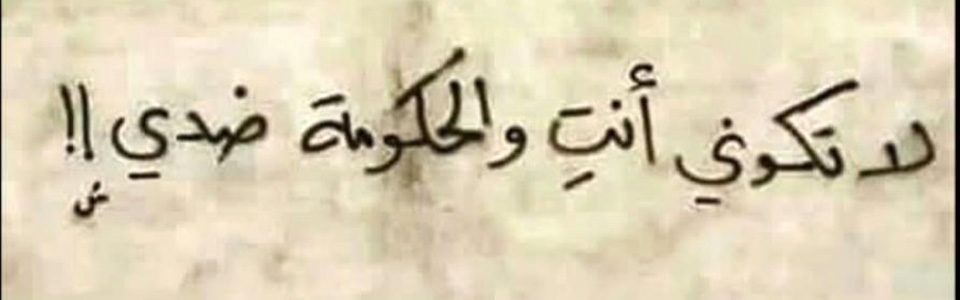 لا تكوني أنتِ والحكومة ضدي !!